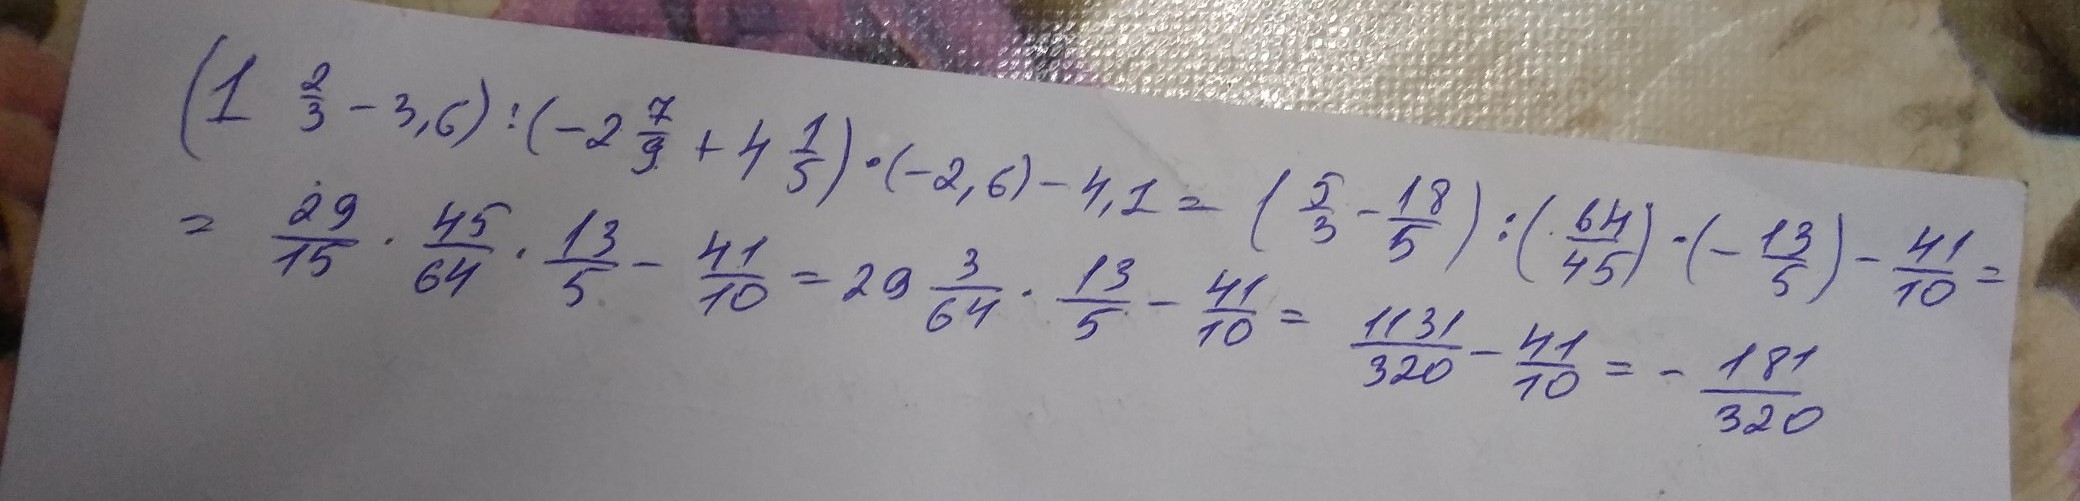 (1 2/3 - 3,6) : (-2 7/9 + 4 1/5) · (-2,6) - 4,1 = (5/3 - 18/5) : (64/45) · (-13/5) - 41/10 =
= 29/15 · 45/64 · 13/5 - 41/10 = 29 3/64 · 13/5 - 41/10 = 1131/320 - 41/10 = - 181/320